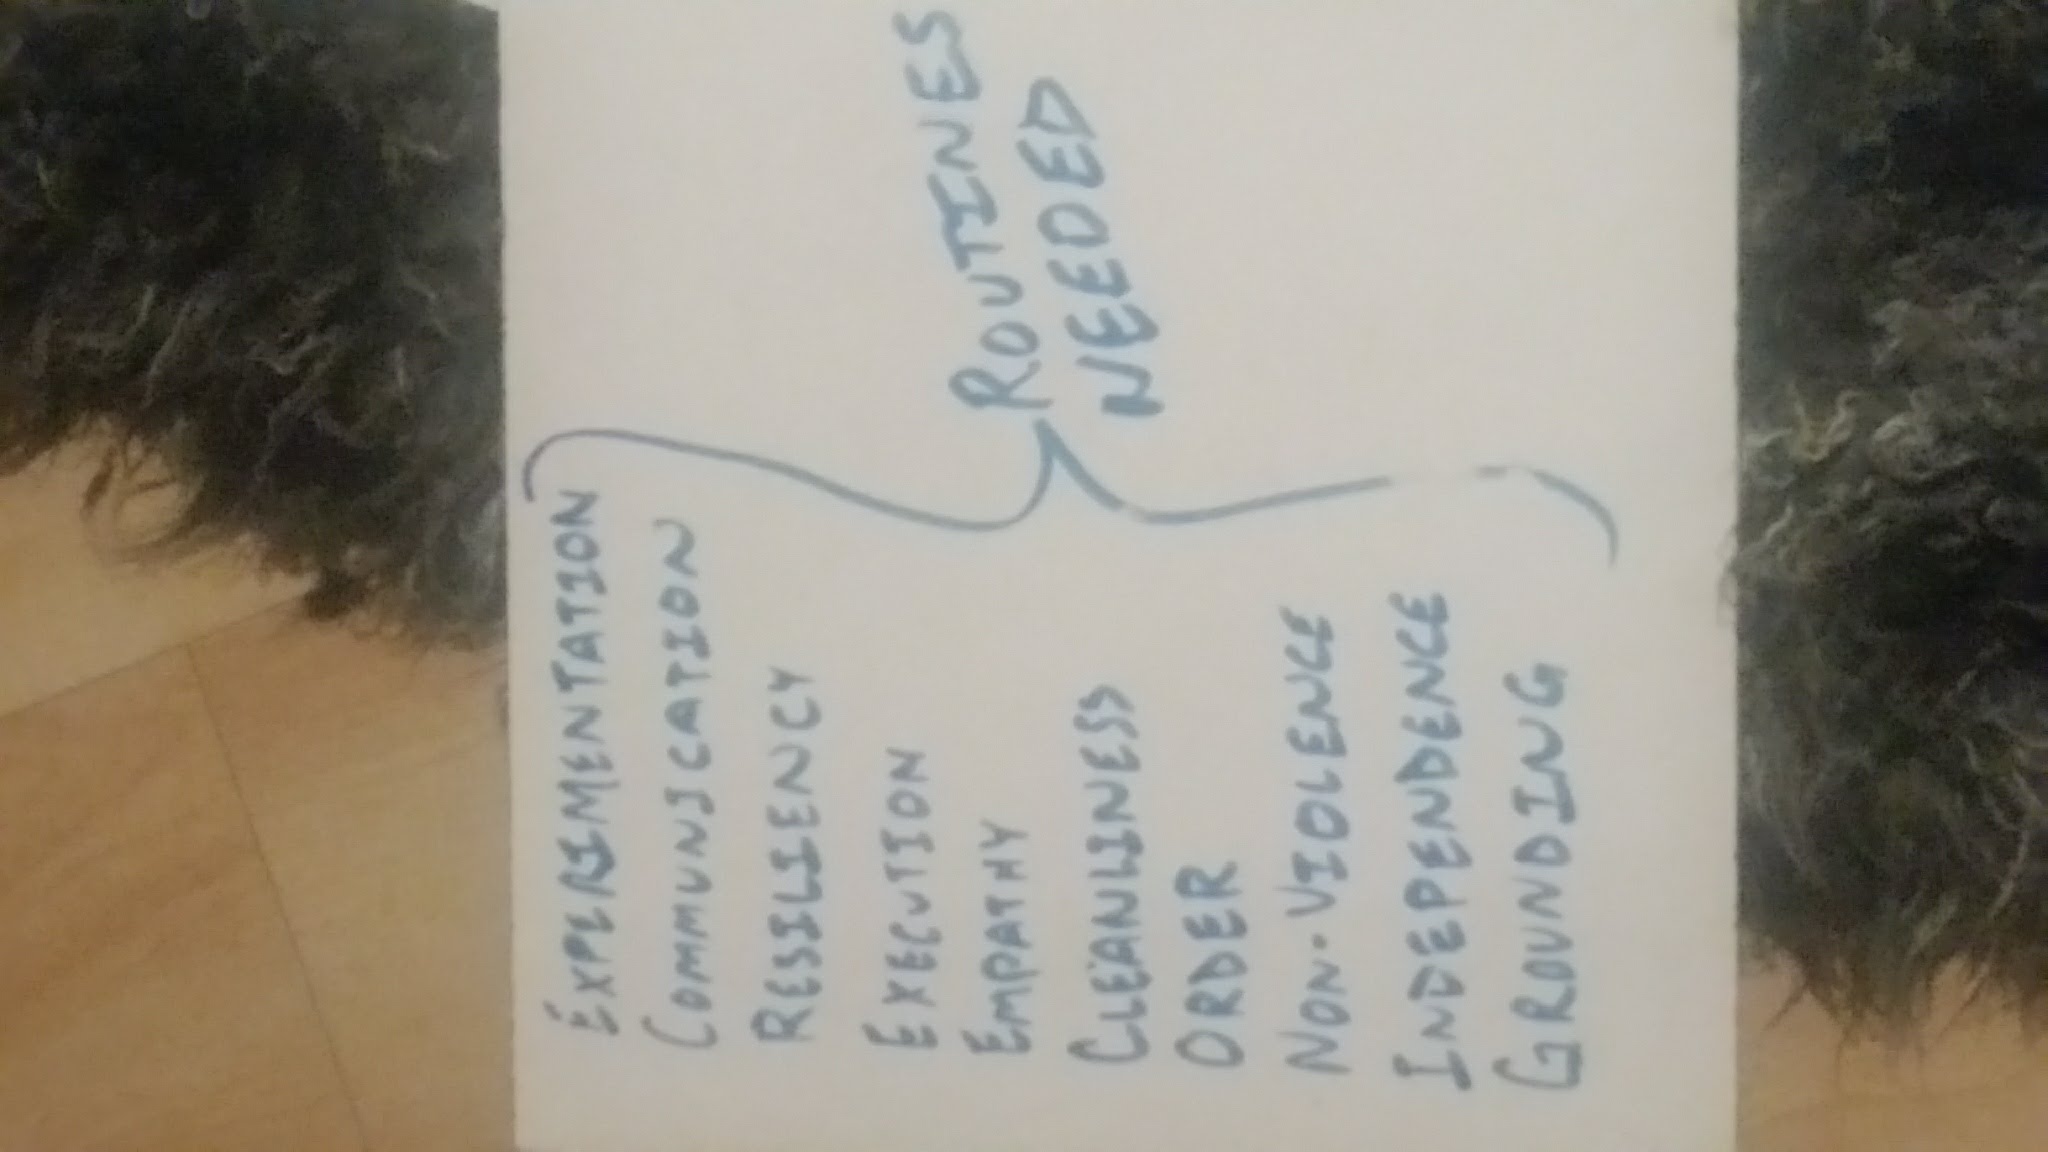 EXPERIMENTATION
COMMUNICATION
RESILIENCY
EXECUTION
EMPATHY
CLEANLINESS
ORDER
NON-VIOLENCE
INDEPENDENCE
GROUNDING
ROUTINES
NEEDED